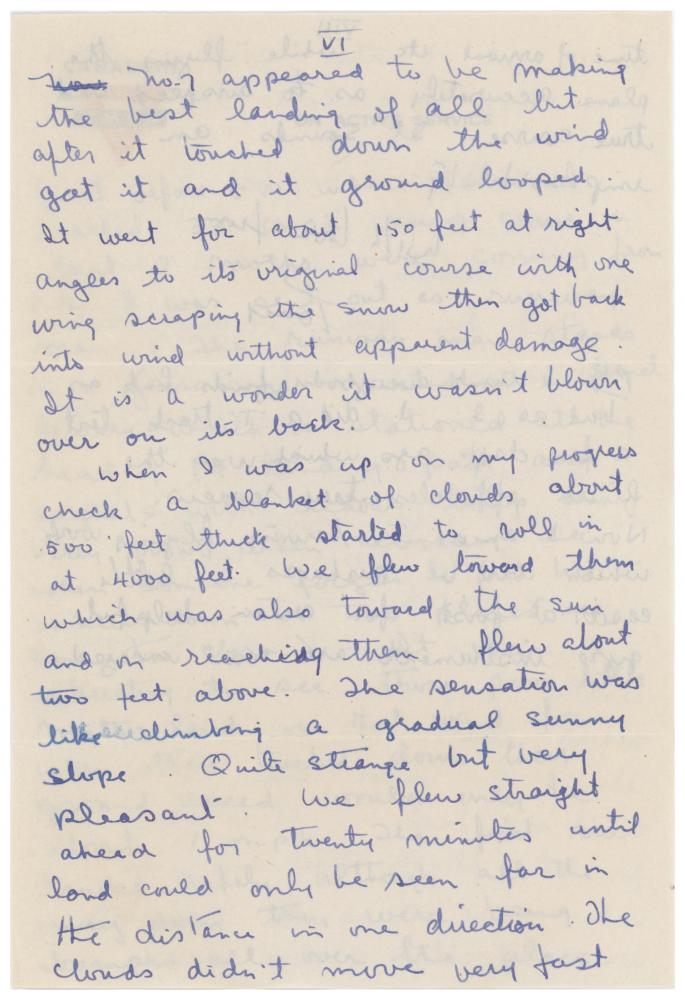 VI
No 7 appeared to be making
the best landing of all but
after it touched down the wind
got it and it ground looped.
It went for about 150 feet at right
angles to its original course with one
wing scraping the snow then got back
into wind without apparent damage.
It is a wonder it wasn't blown
over on its back.
When I was up on my progress
check a blanket of clouds about
500 feet thick started to roll in
at 4000 feet. We flew toward them
which was also toward the sun
and on reaching them flew about
two feet above. The sensation was
like climbing a gradual sunny
slope. Quite strange but very
pleasant. We flew straight
ahead for twenty minutes until
land could only be seen far in
the distance in one direction. The
clouds didn't move very fast